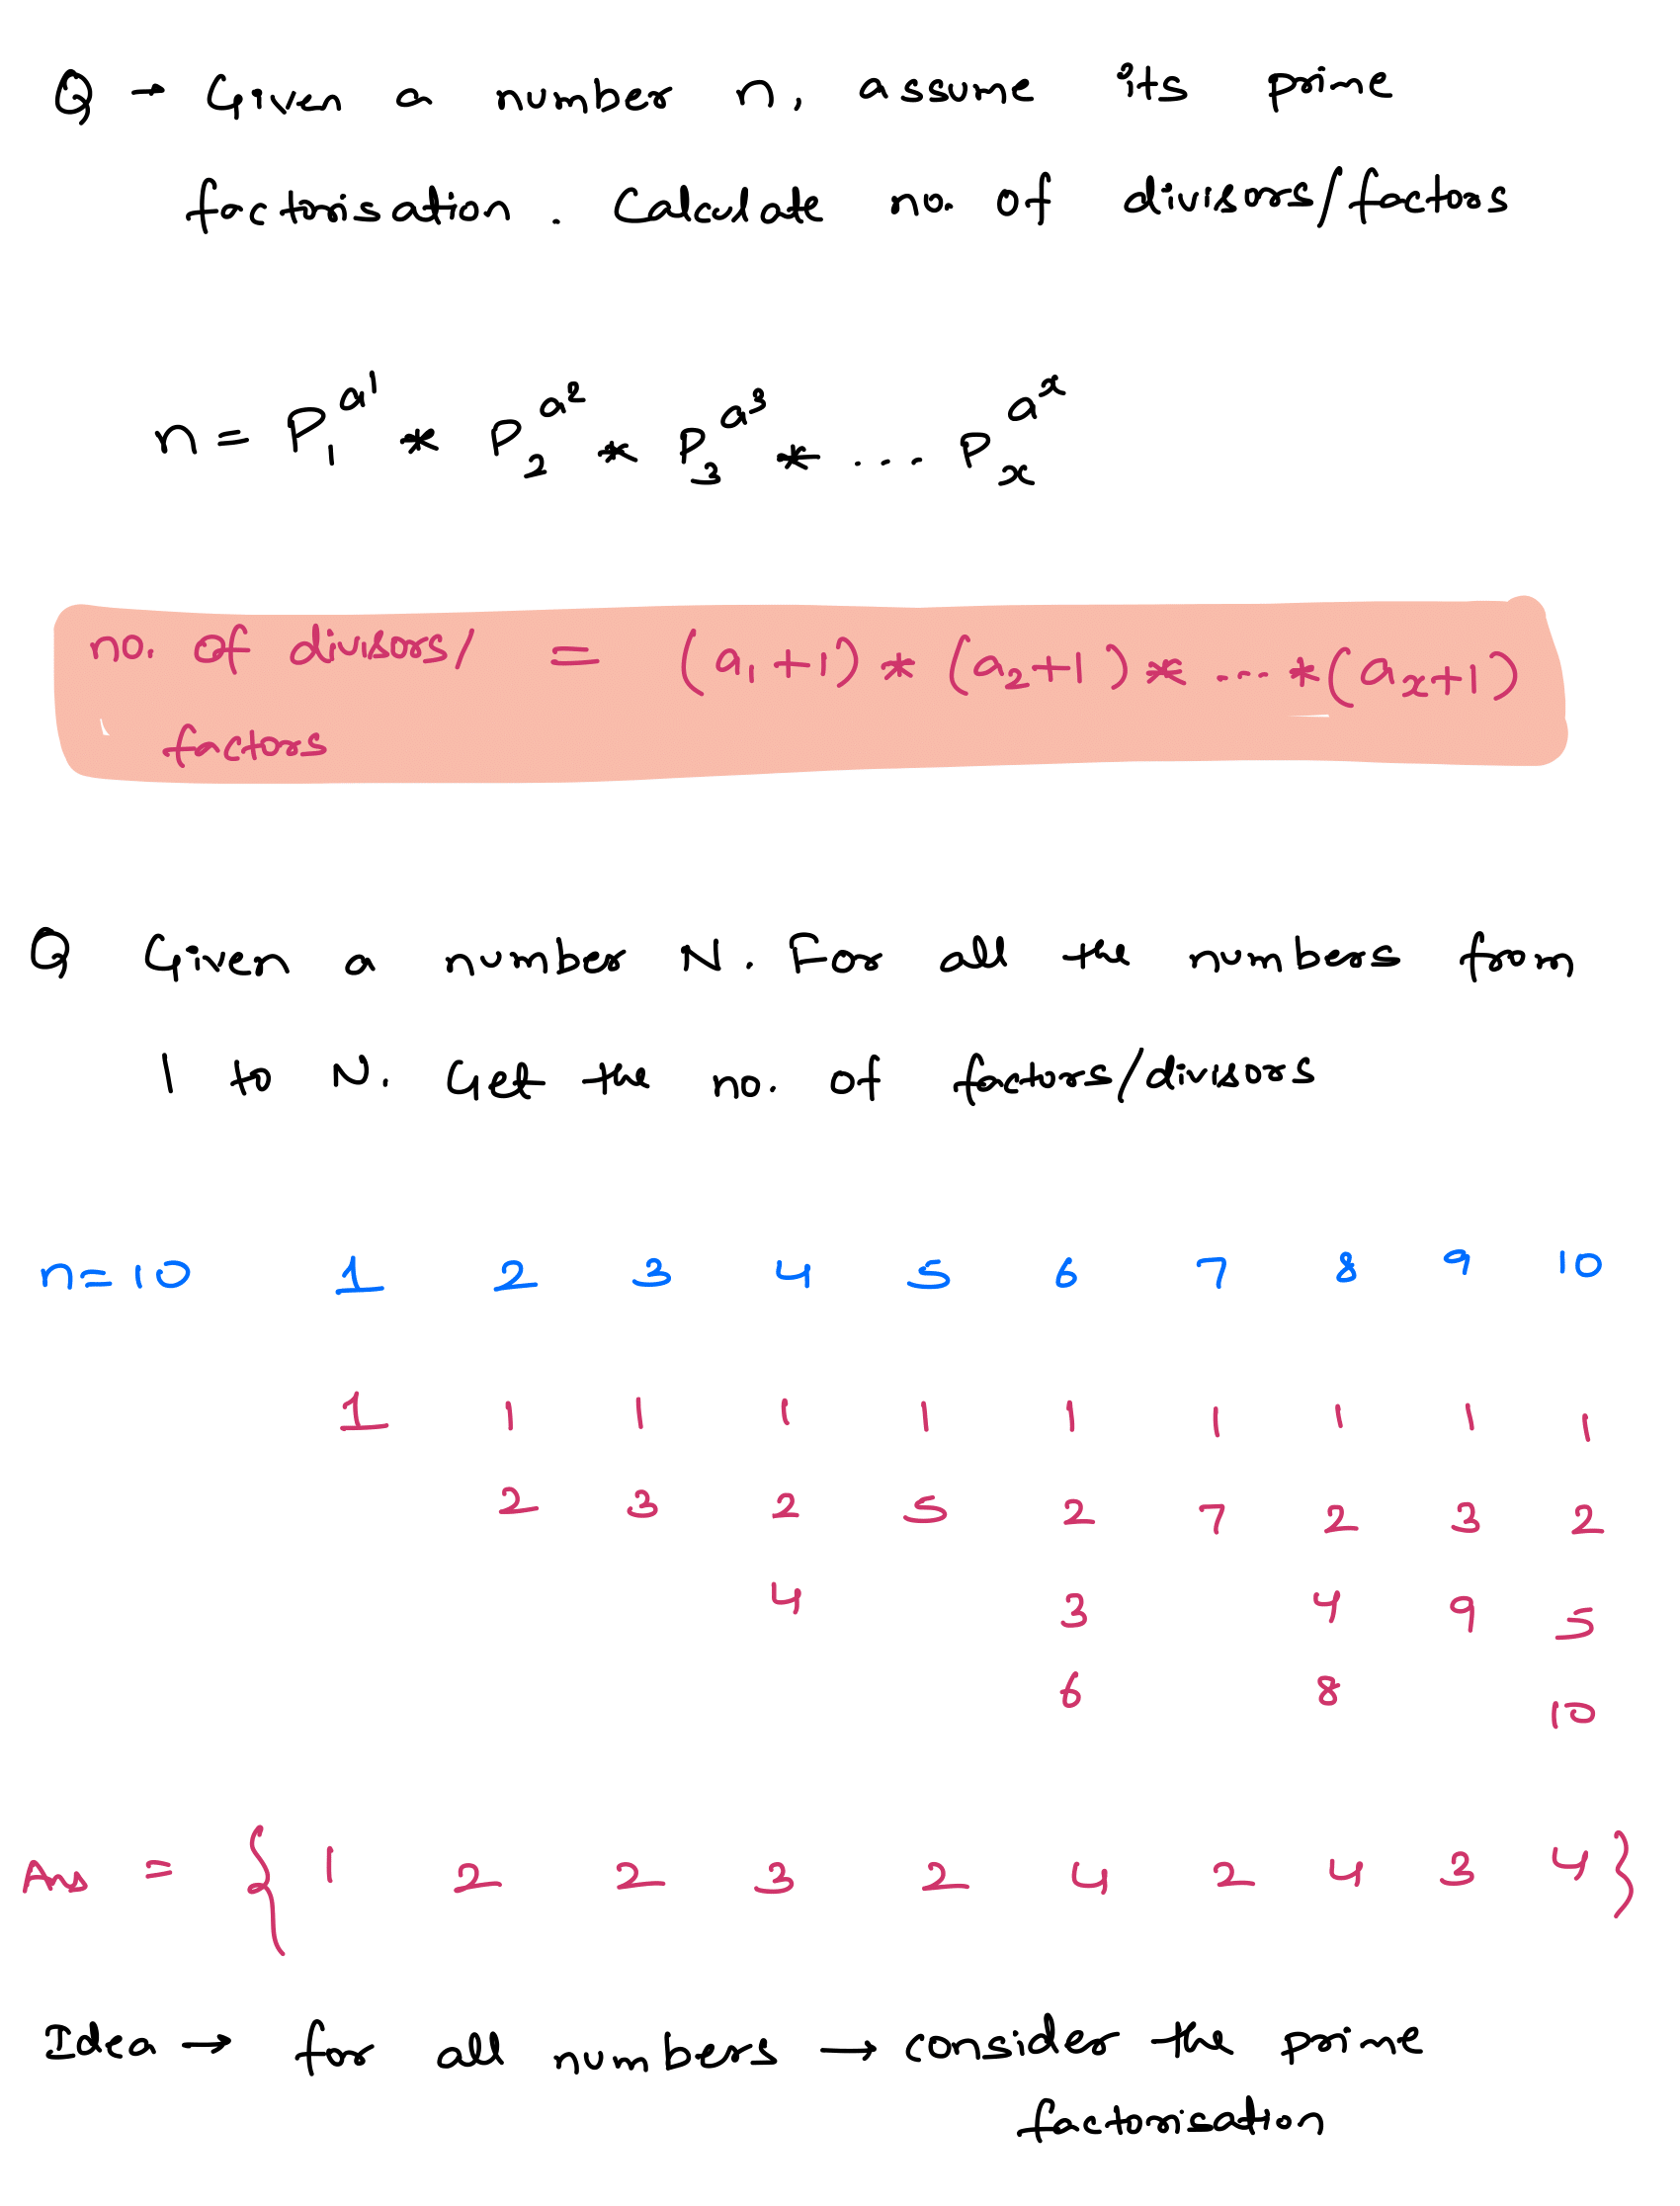 Q → Given a number n, assume its prime
factorisation. Calculate no. of divisors/factors
n = P₁^a1 * P₂^a2 * P₃^a3 * ... Pₓ^ax
no. of divisors/ = (a₁+1) * (a₂+1) * ... * (aₓ+1)
factors
Q Given a number N. For all the numbers from
1 to N. Get the no. of factors/divisors
n=10 1 2 3 4 5 6 7 8 9 10
1 1 1 1 1 1 1 1 1 1
2 3 2 5 2 7 2 3 2
4 3 4 9 5
6 8 10
Ans = { 1 2 2 3 2 4 2 4 3 4 }
Idea → for all numbers → consider the prime
factorisation